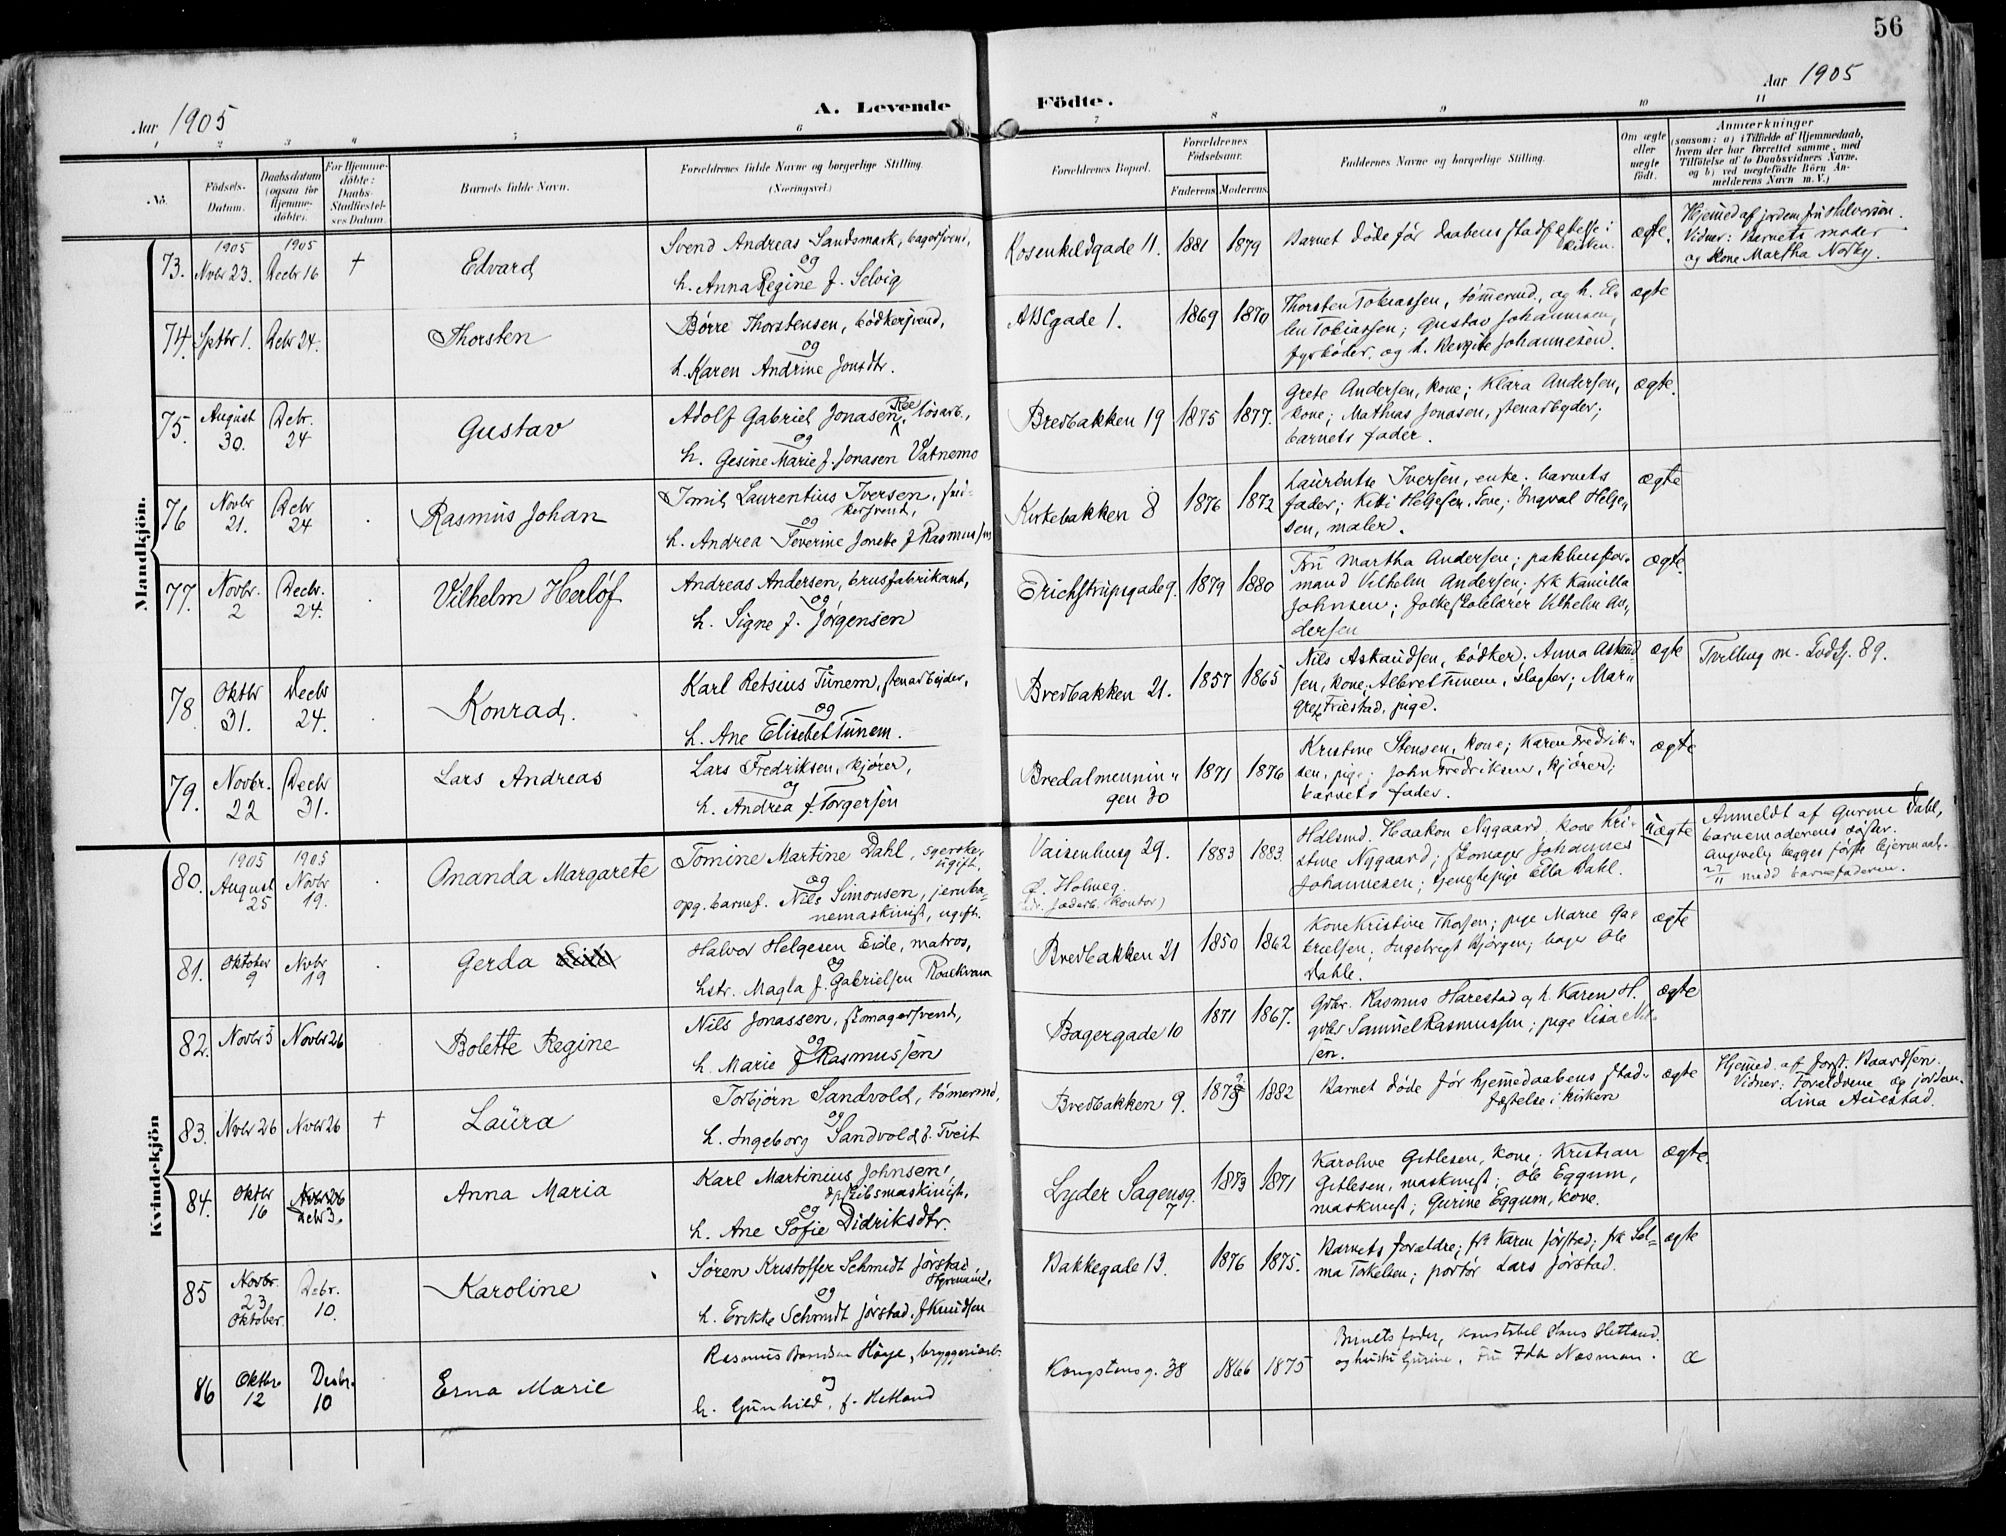 56
Aar 1905
A. Levende Födte.
Aar 1905
1 2 3 4 5 6 7 8 9 10 11
No.
Födsels-
Datum.
Daabsdatum
(ogsaa for
Hjemme-
döbte).
For Hjemme-
döbte:
Daabs-
Stadfæstel-
ses Datum.
Barnets fulde Navn.
Forældrenes fulde Navne og borgerlige Stilling.
(Næringsvei.)
Forældrenes Bopæl.
Forældrenes
Födselsaar.
Faderens. Moderens.
Faddernes Navne og borgerlige Stilling.
Om ægte
eller
uægte
födt.
Anmærkninger
(saasom: a) i Tilfælde af Hjemmedaab,
hvem der har forrettet samme, med
Tilföielse af to Daabsvidners Navne,
og b) ved uægtefödte Börn An-
melderens Navn m. V.)
Mandkjön.
73.
1905
Novbr 23.
1905
Decbr 16
†
Edvard
Svend Andreas Sandsmark, bagersvend,
og
h. Anna Regine f. Selvig
Rosenkildgade 11.
1881
1879
Barnet døde før daabens stadfæstelse i
kirken.
ægte.
Hjemmed. af jordem. fru Halvorsen.
Vidner: Barnets moder
og kone Martha Norby.
74.
Sptbr 1.
Debr 24.
Thorsten
Børre Thorstensen, bødkersvend,
og
h. Karen Andrine Jonsdtr.
ABCgade 1.
1869
1870
Thorsten Tobiassen, tømermd., og h. El-
len Tobiassen; Gustav Johannesen,
fyrbøder, og h. Bergite Johannesen.
ægte
75.
August
30.
Debr.
24
Gustav
Adolf Gabriel Jonasen Ree, løsarb.,
og
h. Gesine Marie f. Jonasen Vatnemo
Bredbakken 19
1875
1877.
Grete Andersen, kone; Klara Andersen,
kone; Mathias Jonasen, stenarbyder;
barnets fader.
ægte.
76
Novbr
21.
Debr
24
Rasmus Johan
Tomil Laurentius Iversen,
og
h. Andrea Severine Jonette f Rasmussen
Kirkebakken 8
1876
1872
Laurentse Iversen, enke; barnets
fader; Kitti Helgesen, kone; Ingval Helge-
sen, maler.
ægte
77.
Novbr.
2
Decbr.
24.
Vilhelm Herløf
Andreas Andersen, brusfabrikant,
og
h. Signe f. Jørgensen
Erichstrupsgade 9.
1879
1880
Fru Martha Andersen; pakhusfor-
mand Vilhelm Andersen; frk Kamilla
Johnsen; folkeskolelærer Vilhelm An-
dersen
ægte.
78
Oktbr
31.
Decbr
24.
Konrad.
Karl Retsius Tunem, stenarbejder,
og
h. Ane Elisebet Tunem.
Bredbakken 21.
1857
1865
Nils Askaudsen, bødker; Anna Askaud-
sen, kone; Albret Tunem, slagter; Mar-
grete Friestad, pige.
ægte
Tvilling m. Dødf. 89.
79.
Novbr.
22
Decbr
31.
Lars Andreas
Lars Fredriksen, kjører,
og
h. Andrea f Torgersen
Bredalmennin-
gen 30
1871
1876
Kristine Stensen, kone; Karen Fredrik-
sen, pige; John Fredriksen, kjører;
barnets fader.
ægte
Kvindekjön
80.
1905
August
25
1905
Novbr
19.
Ananda Margarete
Tomine Martine Dahl, syerske,
ugift,
og
opg. barnef. Nils Simonsen, jernba-
nemaskinist, ugift.
Vaisenhusg 29.
Ø. Holmeg.
1883
1883.
Hdlsmd. Haakon Nygaard, kone Kri-
stine Nygaard; skomager Johannes
Johannesen; tjenestepige Ella Dahl.
uægte
Anmeldt af Gurine Dahl,
barnemoderens søster.
Angivelig begges første lejermaal.
27/11 medd barnefaderen.
81.
Oktober
9
Novbr.
19
Gerda
Halvor Helgesen Eide, matros,
og
hstr. Magla f. Gabrielsen Roaskvam
Bredbakken 21
1850
1862
Kone Kristine Thorsen; pige Marie Ga-
brielsen; Ingebregt Bjørgen; bager Ole
Dahle.
ægte
82.
Novbr 5
Novbr 26
Bolette Regine
Nils Jonassen, skomagersvend,
og
h. Marie f Rasmussen
Bagergade 10
1871
1867.
Gdbr. Rasmus Harestad og h. Karen H.
gdbr Samuel Rasmussen; pige Lisa Nil-
sen.
ægte
83.
Novbr 26
Novbr 26
†
Laura
Torbjørn Sandvold, tømermd,
og
h. Ingeborg Sandvold f. Tveit
Bredbakken 9.
1882
Barnet døde før hjemmedaabens stad-
fæstelse i kirken
ægte
Hjemmed. af Forst. Baardsen.
Vidner: Foreldrene og jordem.
Lina Auestad.
84.
Oktbr
16
Novbr 26
Debr 3.
Anna Maria
Karl Martinius Johnsen,
dpskibsmaskinist,
og
h. Ane Sofie Didriksdtr.
Lyder Sagensg.
7
1873
1871
Karoline Gitlesen, kone; Kristian
Gitlesen, maskinist; Ole Eggum,
maskinist; Gurine Eggum, kone.
ægte.
85
Novbr.
23
Oktober.
Debr.
10.
Karoline
Søren Kristoffer Schmidt Jørstad,
styrmand,
og
h. Erikke Schmidt Jørstad, f Knudsen
Bakkegade 13.
1876
1875.
Barnets foraldre; frk Karen Jørstad; frk Sel-
ma Torkelsen; portør Lars Jørstad.
ægte
86
Oktbr.
12
Desbr.
10
Erna Marie
Rasmus Høye, bryggeriarb.
og
h. Gunhild, f. Hetland
Kongstensg. 38
1866
1875
Barnets fader, konstabel Hans Hetland
og hustru Gurine, Fru Ida Næsman.
æ